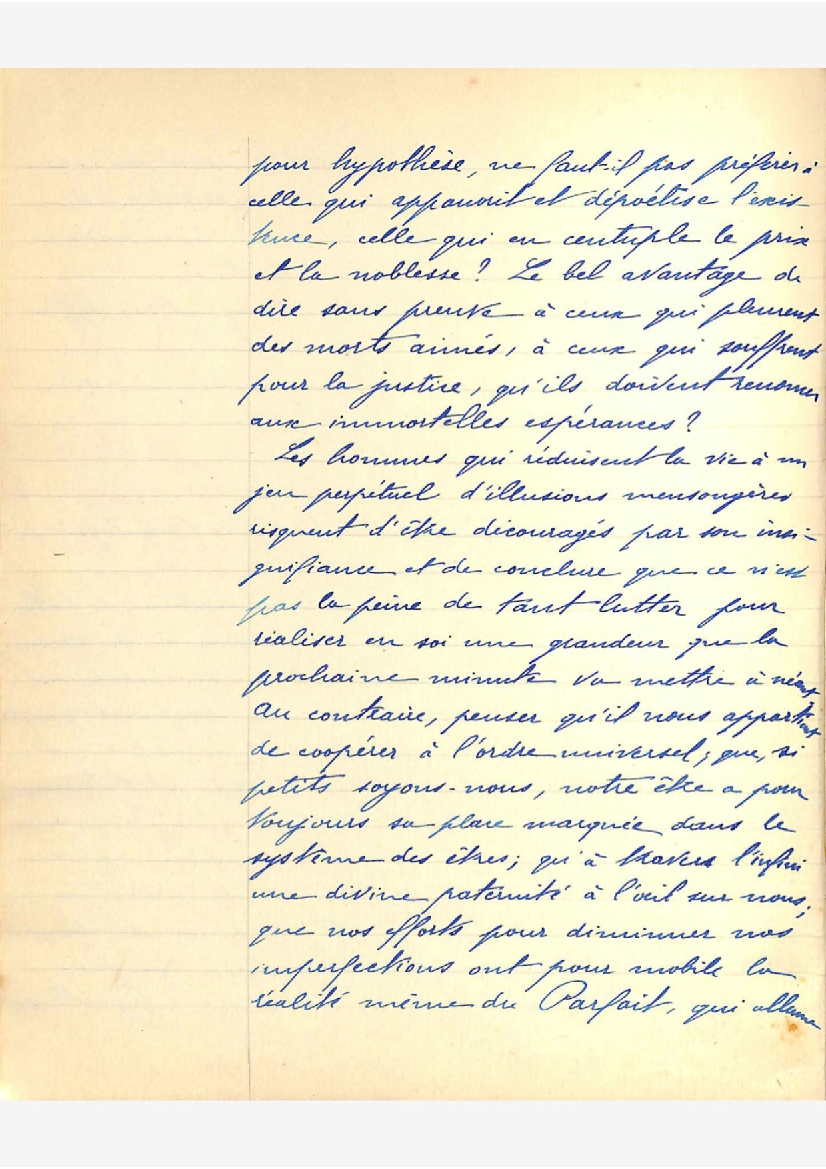 pour hypothèse, ne faut-il pas préférer à
celle qui appauvrit et dépoétise l'exis-
tence, celle qui en centuple le prix
et la noblesse ? Le bel avantage de
dire sans preuve à ceux qui pleurent
des morts aimés, à ceux qui souffrent
pour la justice, qu'ils doivent renoncer
aux immortelles espérances ?
Les hommes qui réduisent la vie à un
jeu perpétuel d'illusions mensongères
risquent d'être découragés par son insi-
gnifiance et de conclure que ce n'est
pas la peine de tant lutter pour
réaliser en soi une grandeur que la
prochaine minute va mettre à néant
Au contraire, penser qu'il nous appartient
de coopérer à l'ordre universel ; que, si
petits soyons-nous, notre être a pour
toujours sa place marquée dans le
système des êtres ; qu'à travers l'infini
une divine paternité à l'œil sur nous ;
que nos efforts pour diminuer nos
imperfections ont pour mobile la
réalité même du Parfait, qui allume